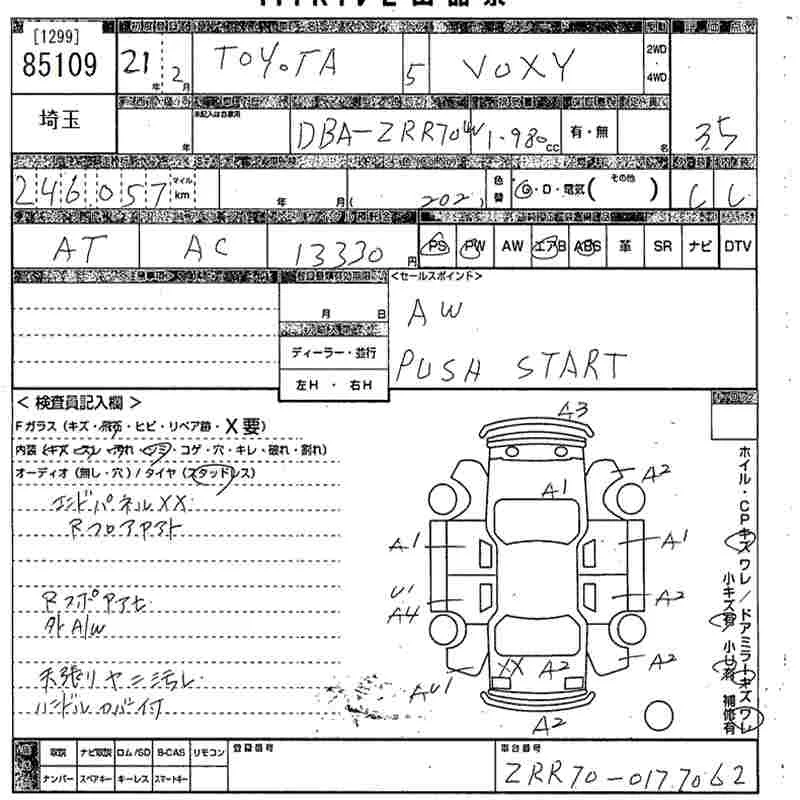 [1299]
85109
21年 2月
TOYOTA
5
VOXY
2WD
・
4WD
埼玉
年
未記入は自家用
DBA-ZRR70W
1.980cc
有・無
名
3.5
246.057
マイル
km
年 月(
202)
色替
G・D・電気( その他 )
C C
AT
AC
13330円
PS PW AW エアB ABS 革 SR ナビ DTV
月 日
ディーラー・並行
左H・右H
<セールスポイント>
AW
PUSH START
<検査員記入欄>
Fガラス(キズ・飛石・ヒビ・リペア跡・X要)
内装(キズ・スレ・汚れ・シミ・コゲ・穴・キレ・破れ・割れ)
オーディオ(無し・穴)/タイヤ(スタッドレス)
エンドパネルXX
Rフロアアト
外A/W
天張リヤニ汚レ
A3
A1
A2
A1
A1
U1
A4
A2
XX
A2
A2
AU1
A2
ホイル・CPキズワレ/ドアミラーキズワレ
小キズ有 小凹有 補修有
取説 ナビ取説 ロム/SD B-CAS リモコン
ナンバー スペアキー キーレス スマートキー
登録番号
車台番号
ZRR70-0177062